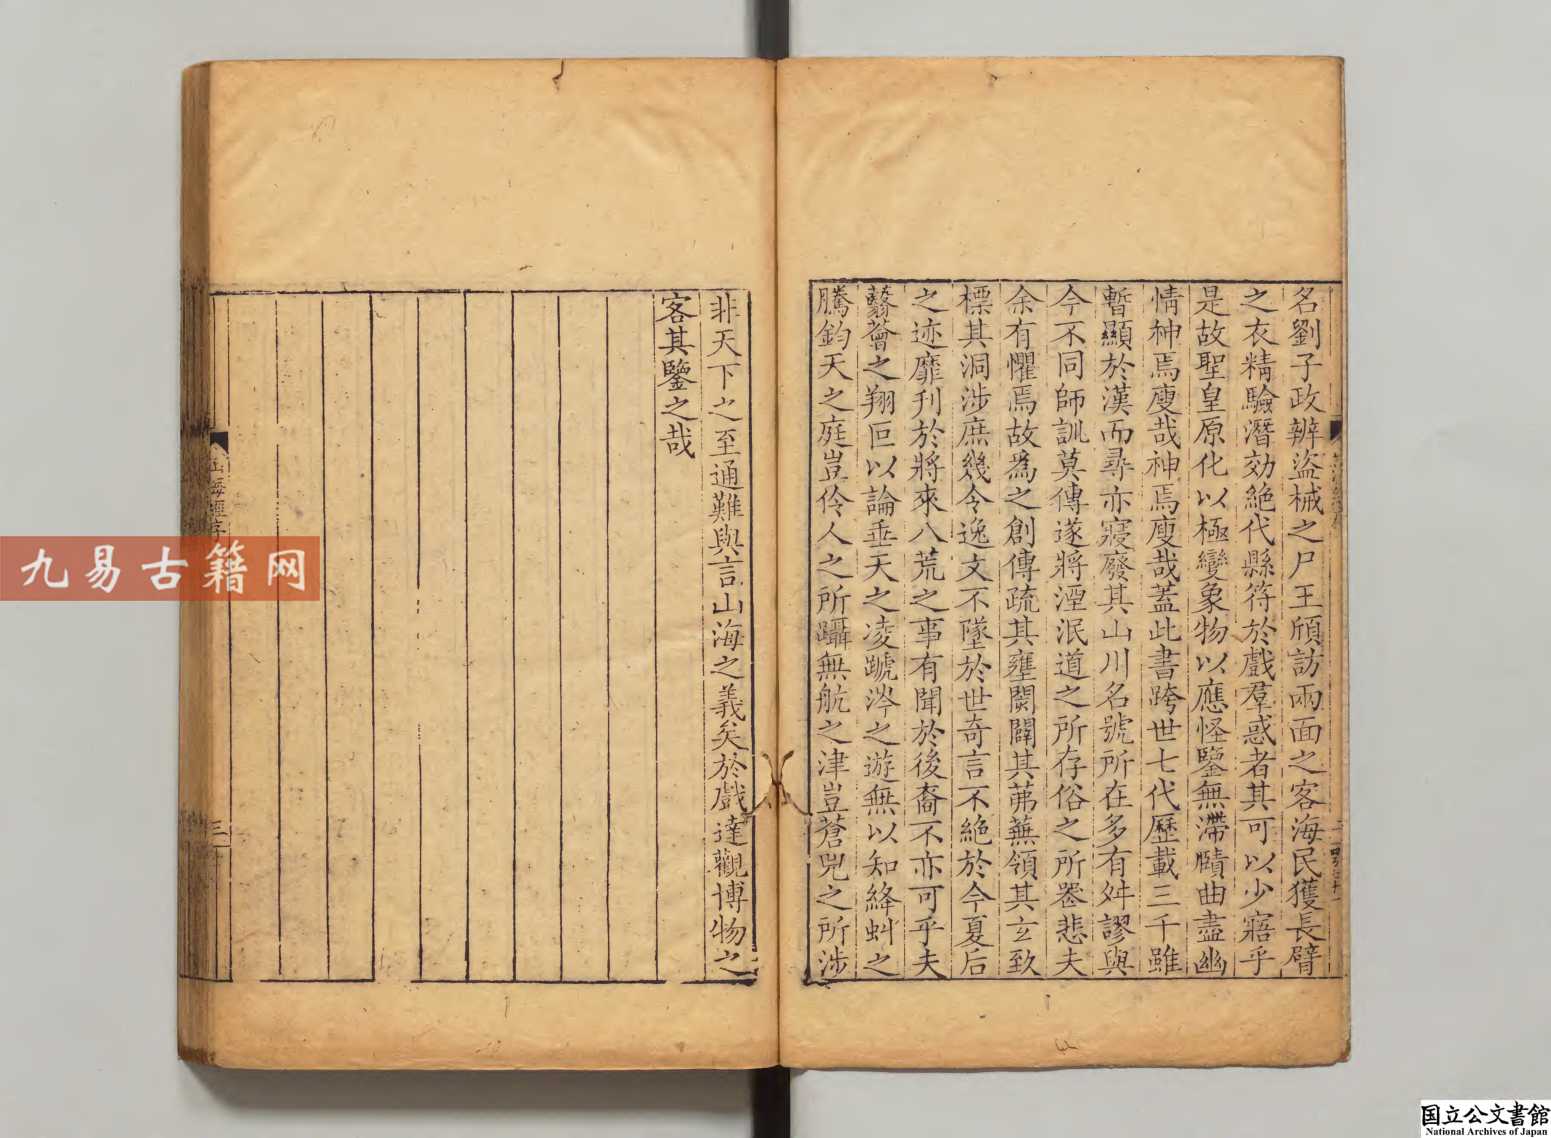 名劉子政辨盜械之尸王頎訪兩面之客海民獲長臂
之衣精驗潛効絶代縣符於戲羣惑者其可以少寤乎
是故聖皇原化以極變象物以應怪鑒無滯賾曲盡幽
情神焉廋哉神焉廋哉蓋此書跨世七代歷載三千雖
暫顯於漢而尋亦寢廢其山川名號所在多有舛謬與
今不同師訓莫傳遂將湮泯道之所存俗之所喪悲夫
余有懼焉故爲之創傳疏其壅閡闢其茀蕪領其玄致
標其洞涉庶幾令逸文不墜於世奇言不絶於今夏后
之迹靡刋於將來八荒之事有聞於後裔不亦可乎夫
蘙薈之翔叵以論垂天之凌蹏涔之遊無以知絳虬之
騰鈞天之庭豈伶人之所躡無航之津豈蒼兕之所涉
非天下之至通難與言山海之義矣於戲達觀博物之
客其鑒之哉
山海經序
三
九易古籍网
国立公文書館
National Archives of Japan